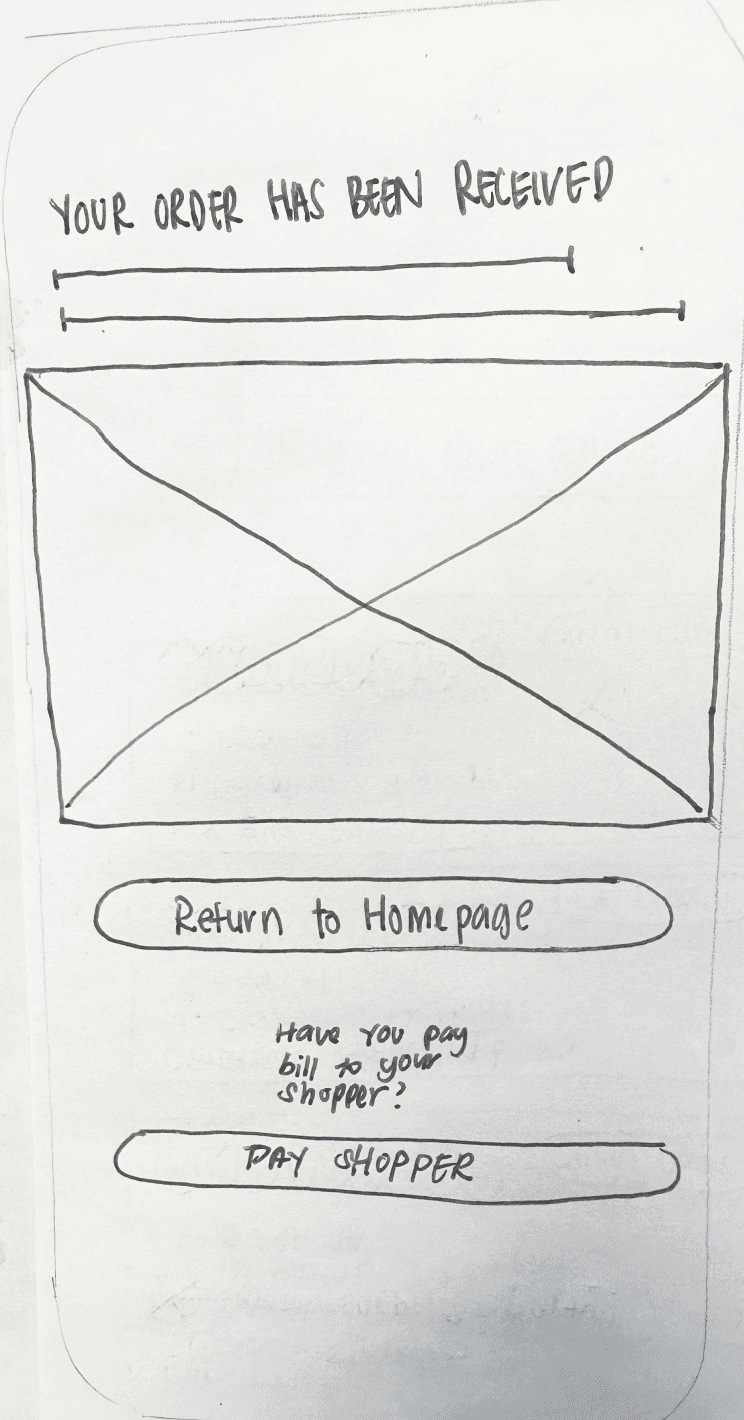 YOUR ORDER HAS BEEN RECEIVED
Return to Homepage
Have You pay
bill to your
shopper?
PAY SHOPPER